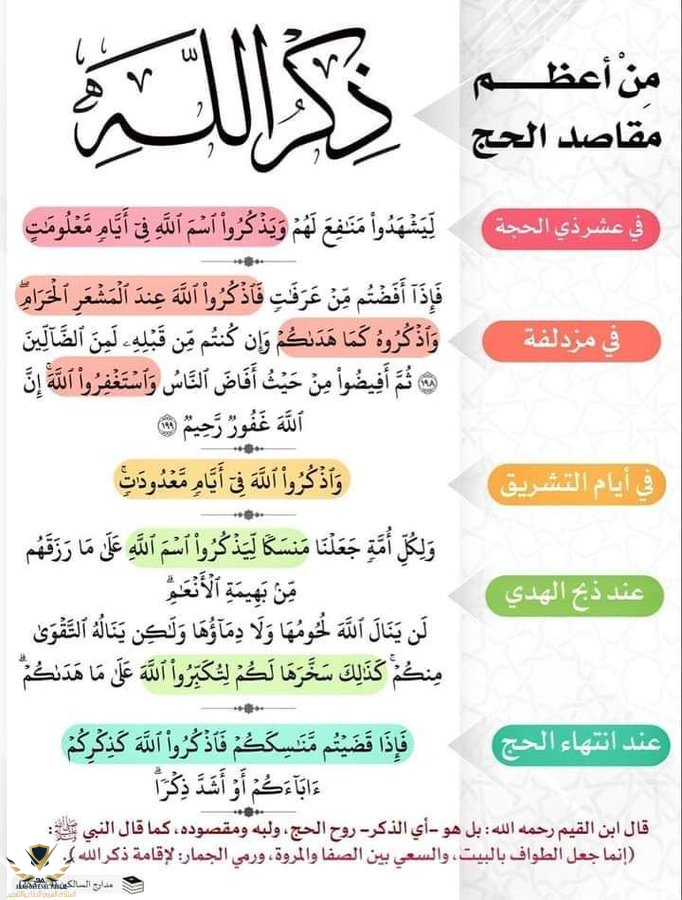 مِنْ أعظـــم
مقاصد الحج
ذِكْرُ اللَّهِ
في عشر ذي الحجة
لِّيَشْهَدُوا۟ مَنَٰفِعَ لَهُمْ وَيَذْكُرُوا۟ ٱسْمَ ٱللَّهِ فِىٓ أَيَّامٍ مَّعْلُومَٰتٍ
في مزدلفة
فَإِذَآ أَفَضْتُم مِّنْ عَرَفَٰتٍ فَٱذْكُرُوا۟ ٱللَّهَ عِندَ ٱلْمَشْعَرِ ٱلْحَرَامِ ۖ
وَٱذْكُرُوهُ كَمَا هَدَىٰكُمْ وَإِن كُنتُم مِّن قَبْلِهِۦ لَمِنَ ٱلضَّآلِّينَ
١٩٨ ثُمَّ أَفِيضُوا۟ مِنْ حَيْثُ أَفَاضَ ٱلنَّاسُ وَٱسْتَغْفِرُوا۟ ٱللَّهَ ۚ إِنَّ
ٱللَّهَ غَفُورٌ رَّحِيمٌ ١٩٩
في أيام التشريق
وَٱذْكُرُوا۟ ٱللَّهَ فِىٓ أَيَّامٍ مَّعْدُودَٰتٍ ۚ
عند ذبح الهدي
وَلِكُلِّ أُمَّةٍ جَعَلْنَا مَنسَكًا لِّيَذْكُرُوا۟ ٱسْمَ ٱللَّهِ عَلَىٰ مَا رَزَقَهُم
مِّنۢ بَهِيمَةِ ٱلْأَنْعَٰمِ ۗ
لَن يَنَالَ ٱللَّهَ لُحُومُهَا وَلَا دِمَآؤُهَا وَلَٰكِن يَنَالُهُ ٱلتَّقْوَىٰ
مِنكُمْ ۚ كَذَٰلِكَ سَخَّرَهَا لَكُمْ لِتُكَبِّرُوا۟ ٱللَّهَ عَلَىٰ مَا هَدَىٰكُمْ ۗ
عند انتهاء الحج
فَإِذَا قَضَيْتُم مَّنَٰسِكَكُمْ فَٱذْكُرُوا۟ ٱللَّهَ كَذِكْرِكُمْ
ءَابَآءَكُمْ أَوْ أَشَدَّ ذِكْرًا ۗ
قال ابن القيم رحمه الله: بل هو -أي الذكر- روح الحج، ولبه ومقصوده، كما قال النبي ﷺ:
(إنما جعل الطواف بالبيت، والسعي بين الصفا والمروة، ورمي الجمار: لإقامة ذكر الله).
مدارج السالكين